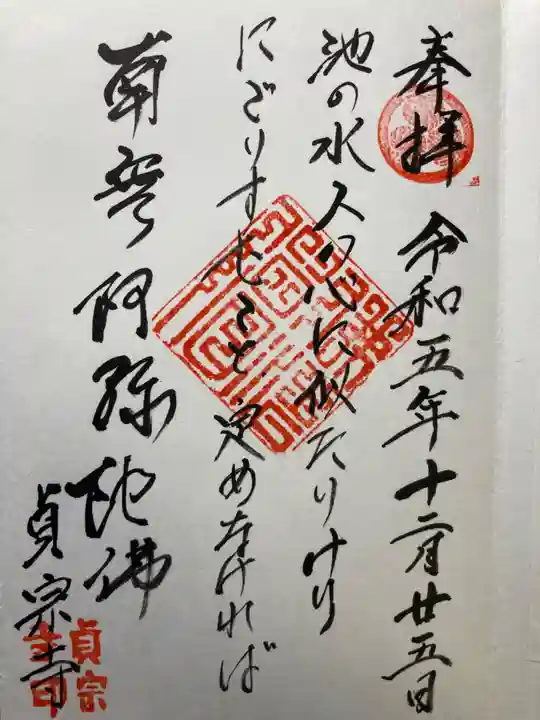 奉拝 令和五年十二月廿五日
池の水人の心に似たりけり
にごりすむこと定めなければ
南無阿弥陀佛
貞宗寺
貞宗
寺印